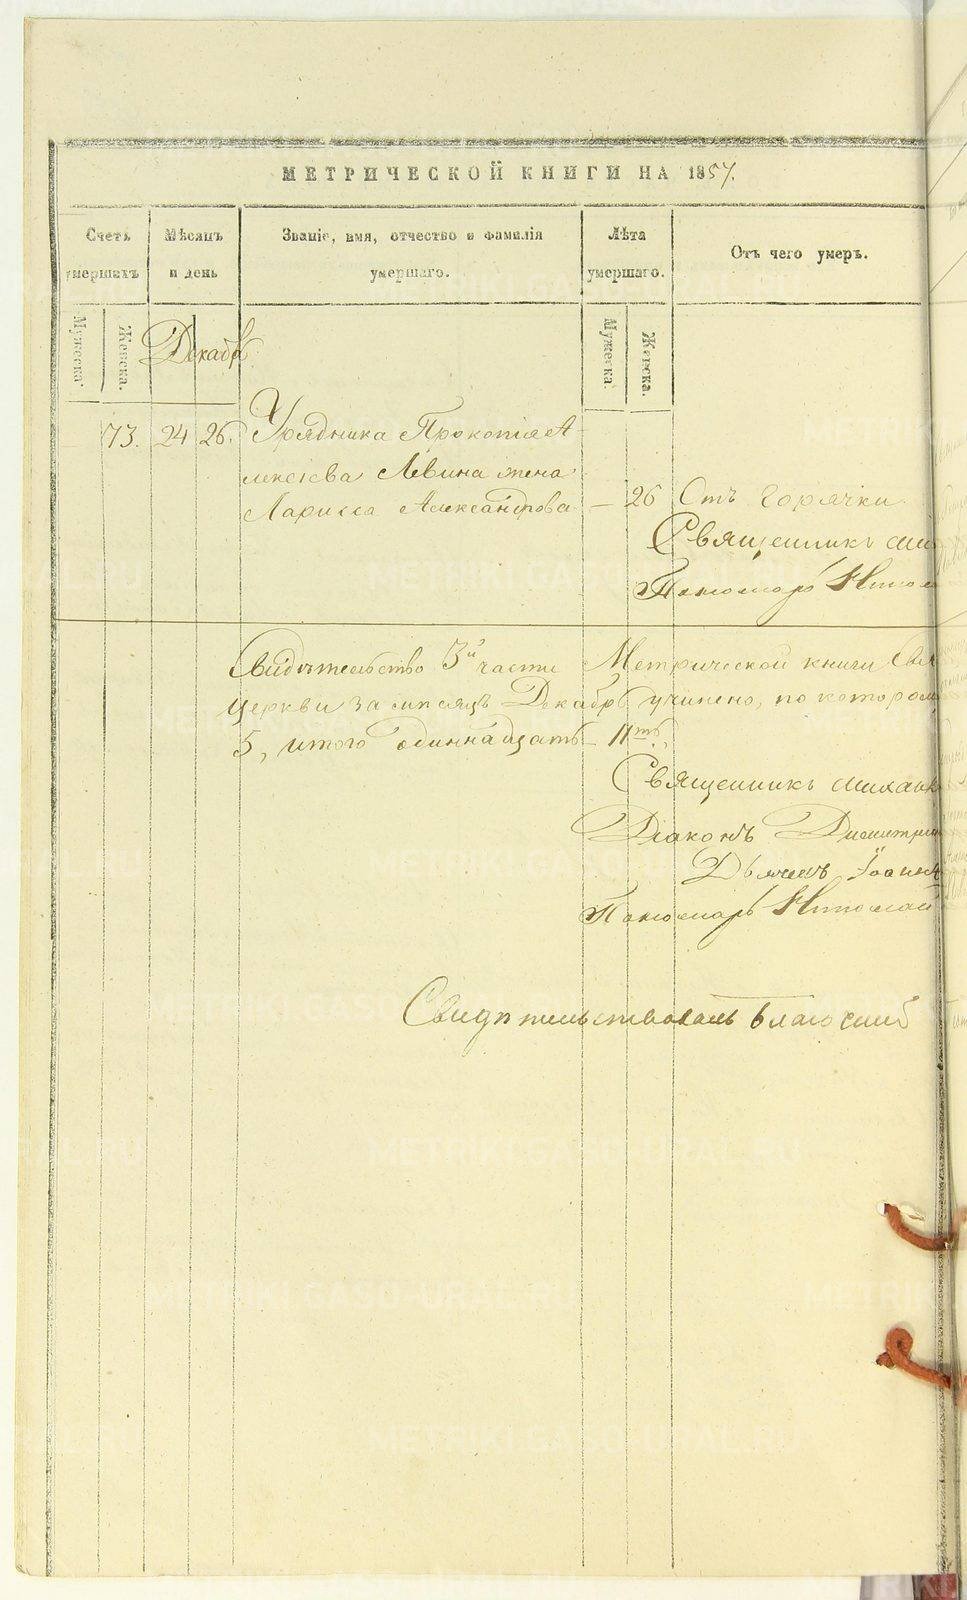 МЕТРИЧЕСКОЙ КНИГИ НА 1857.
Счетъ умершихъ
Мѣсяцъ и день
Званіе, имя, отчество и фамилія умершаго.
Лѣта умершаго.
Отъ чего умеръ.
Мужеска.
Женска.
Декабрь
Мужеска.
Женска.
73. 24 26. Урядника Прокопія А-
лексіева Лёвина жена
Ларисса Александрова — 26 Отъ горячки
Священникъ Ми
Пономарь Никол
Свидѣтельство 3й части Метрической книги
Церкви за мѣсяцъ Декабрь учинено, по котором
5, итого одиннадцать — 11ть,
Священникъ Михаи
Діаконъ Димитрі
Дьячекъ Іоанн
Пономарь Николай
Свидѣтельствовалъ Благочин
METRIKI.GASO-URAL.RU